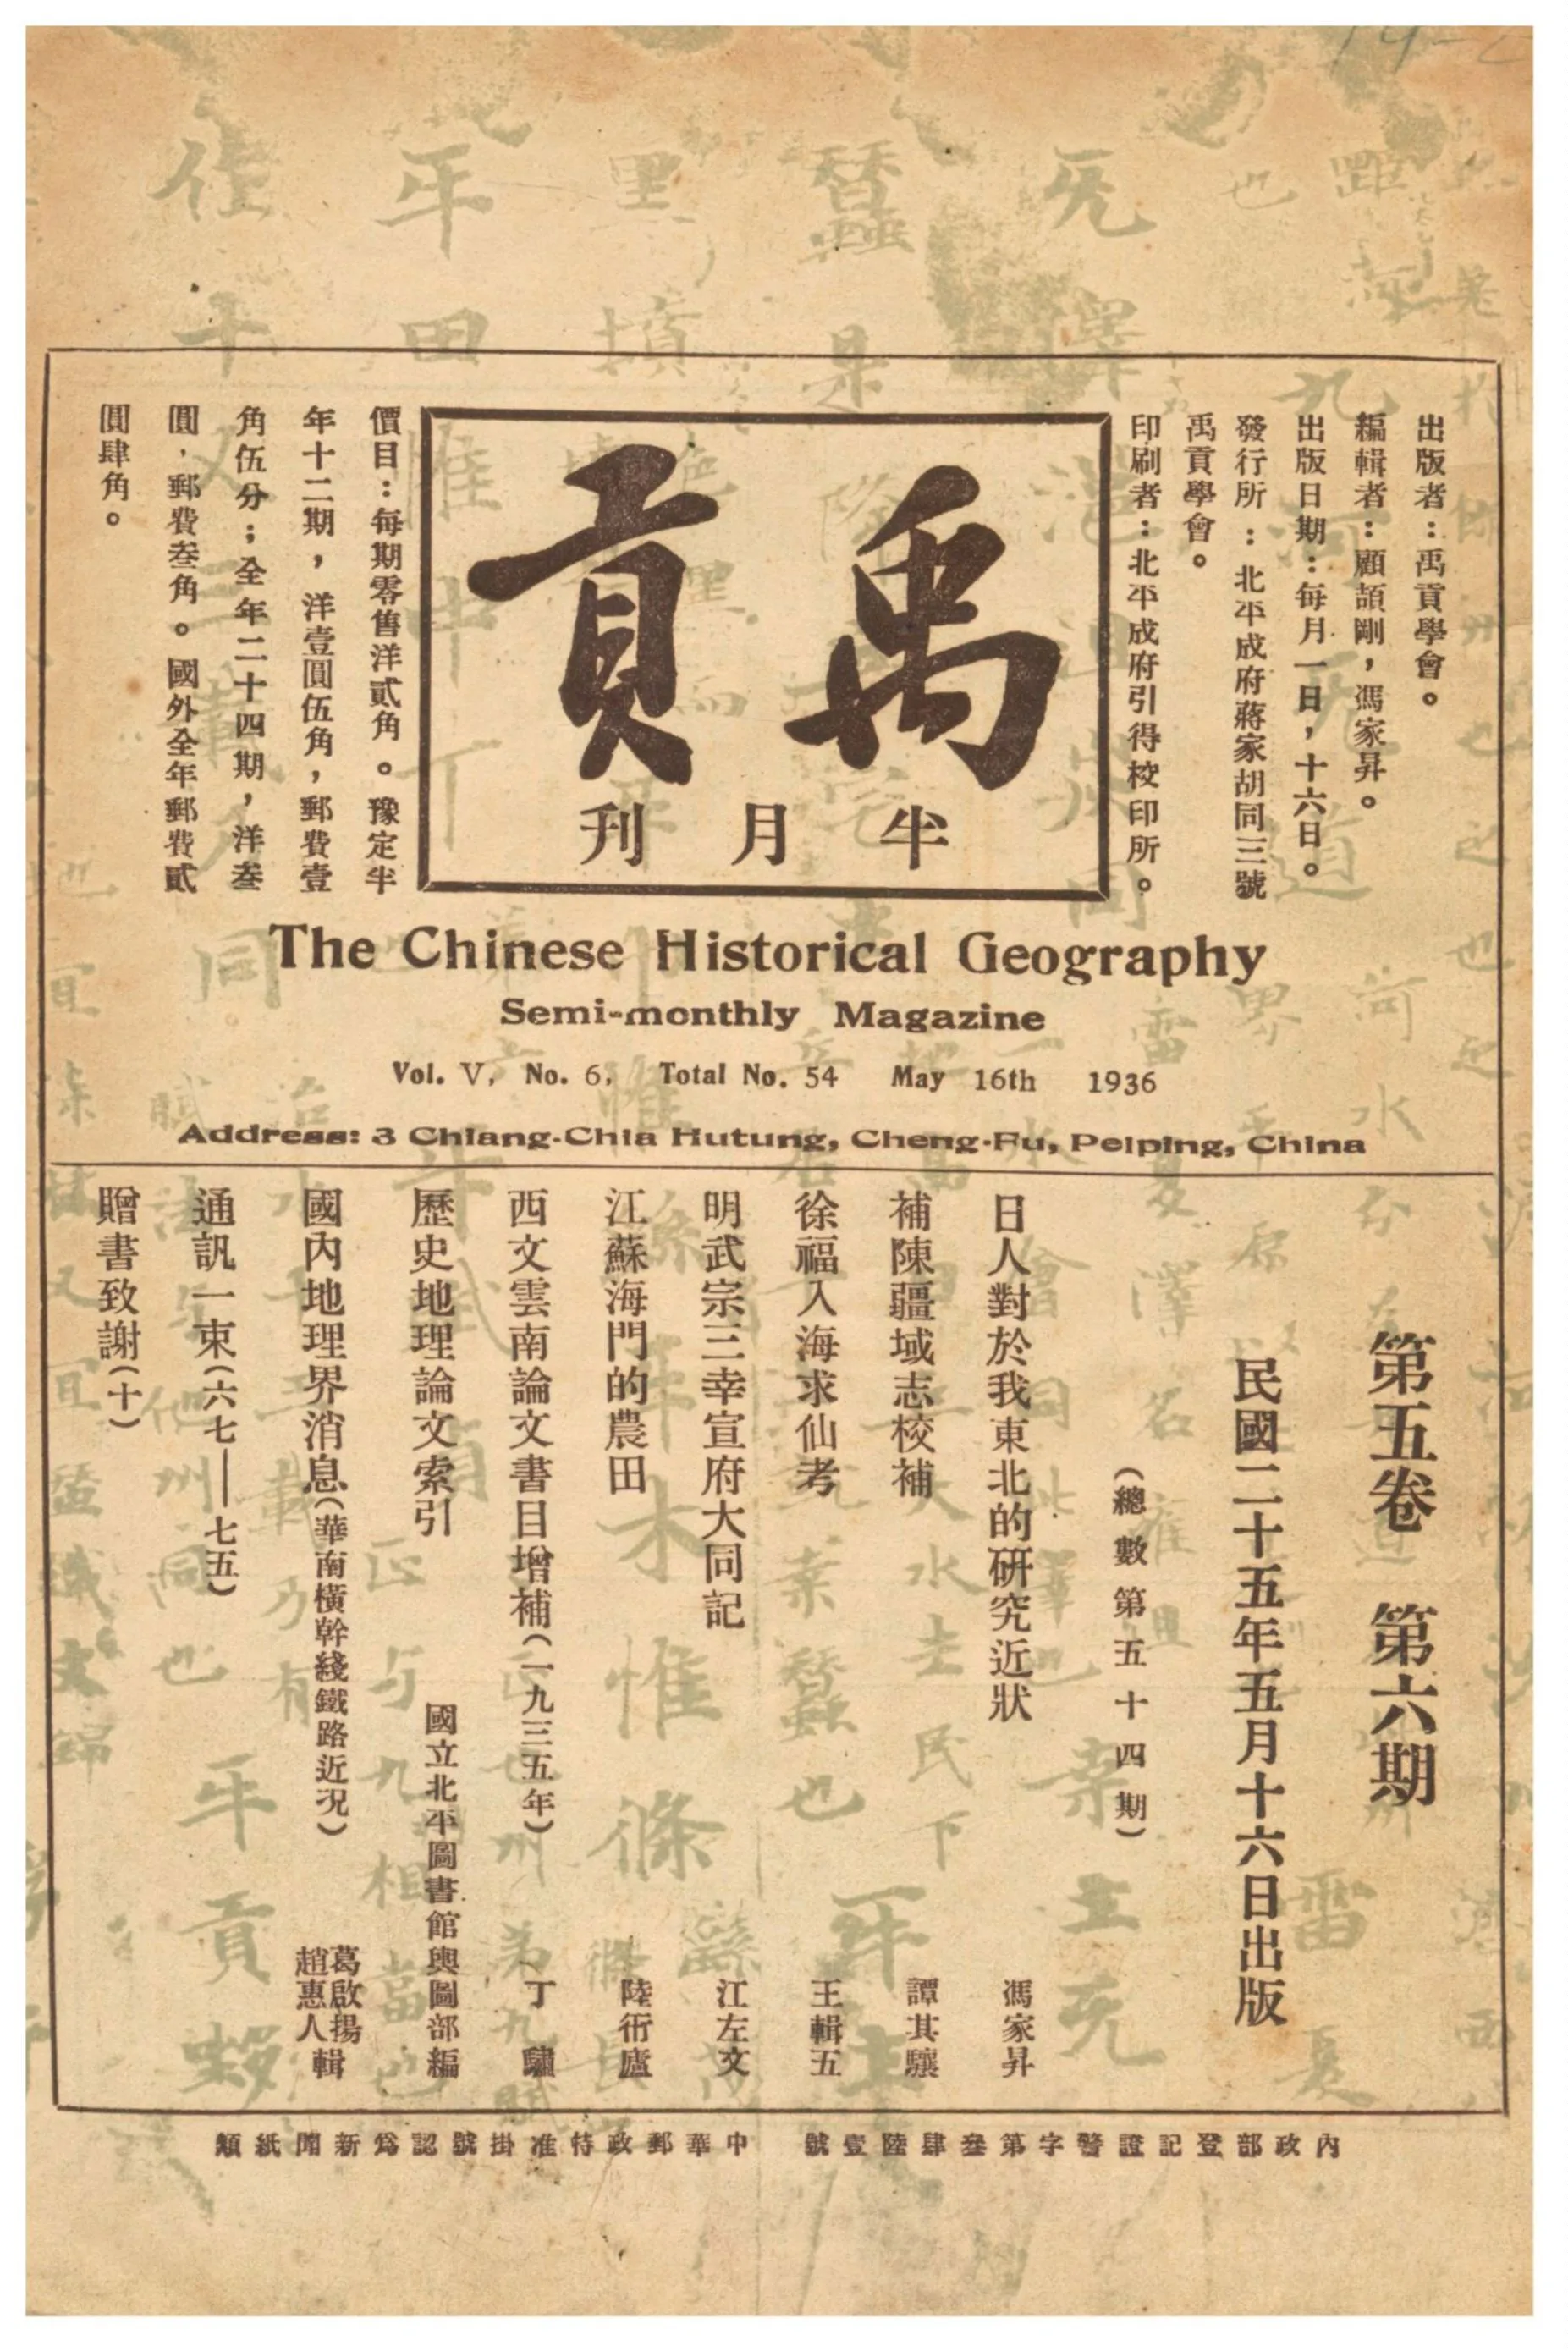 出版者：禹貢學會。
編輯者：顧頡剛，馮家昇。
出版日期：每月一日，十六日。
發行所：北平成府蔣家胡同三號
禹貢學會。
印刷者：北平成府引得校印所。
禹貢
半月刊
價目：每期零售洋貳角。豫定半
年十二期，洋壹圓伍角，郵費壹
角伍分；全年二十四期，洋叁
圓，郵費叁角。國外全年郵費貳
圓肆角。
The Chinese Historical Geography
Semi-monthly Magazine
Vol. V, No. 6, Total No. 54 May 16th 1936
Address: 3 Chiang-Chia Hutung, Cheng-Fu, Peiping, China
第五卷 第六期
民國二十五年五月十六日出版
（總數第五十四期）
日人對於我東北的研究近狀 馮家昇
補陳疆域志校補 譚其驤
徐福入海求仙考 王輯五
明武宗三幸宣府大同記 江左文
江蘇海門的農田 陸衙廬
西文雲南論文書目增補（一九三五年） 丁驌
歷史地理論文索引 國立北平圖書館輿圖部編
國內地理界消息（華南橫幹綫鐵路近況） 葛啟揚 趙惠人 輯
通訊一束（六七——七五）
贈書致謝（十）
內政部登記證警字第叁肆陸壹號 中華郵政特准掛號認爲新聞紙類